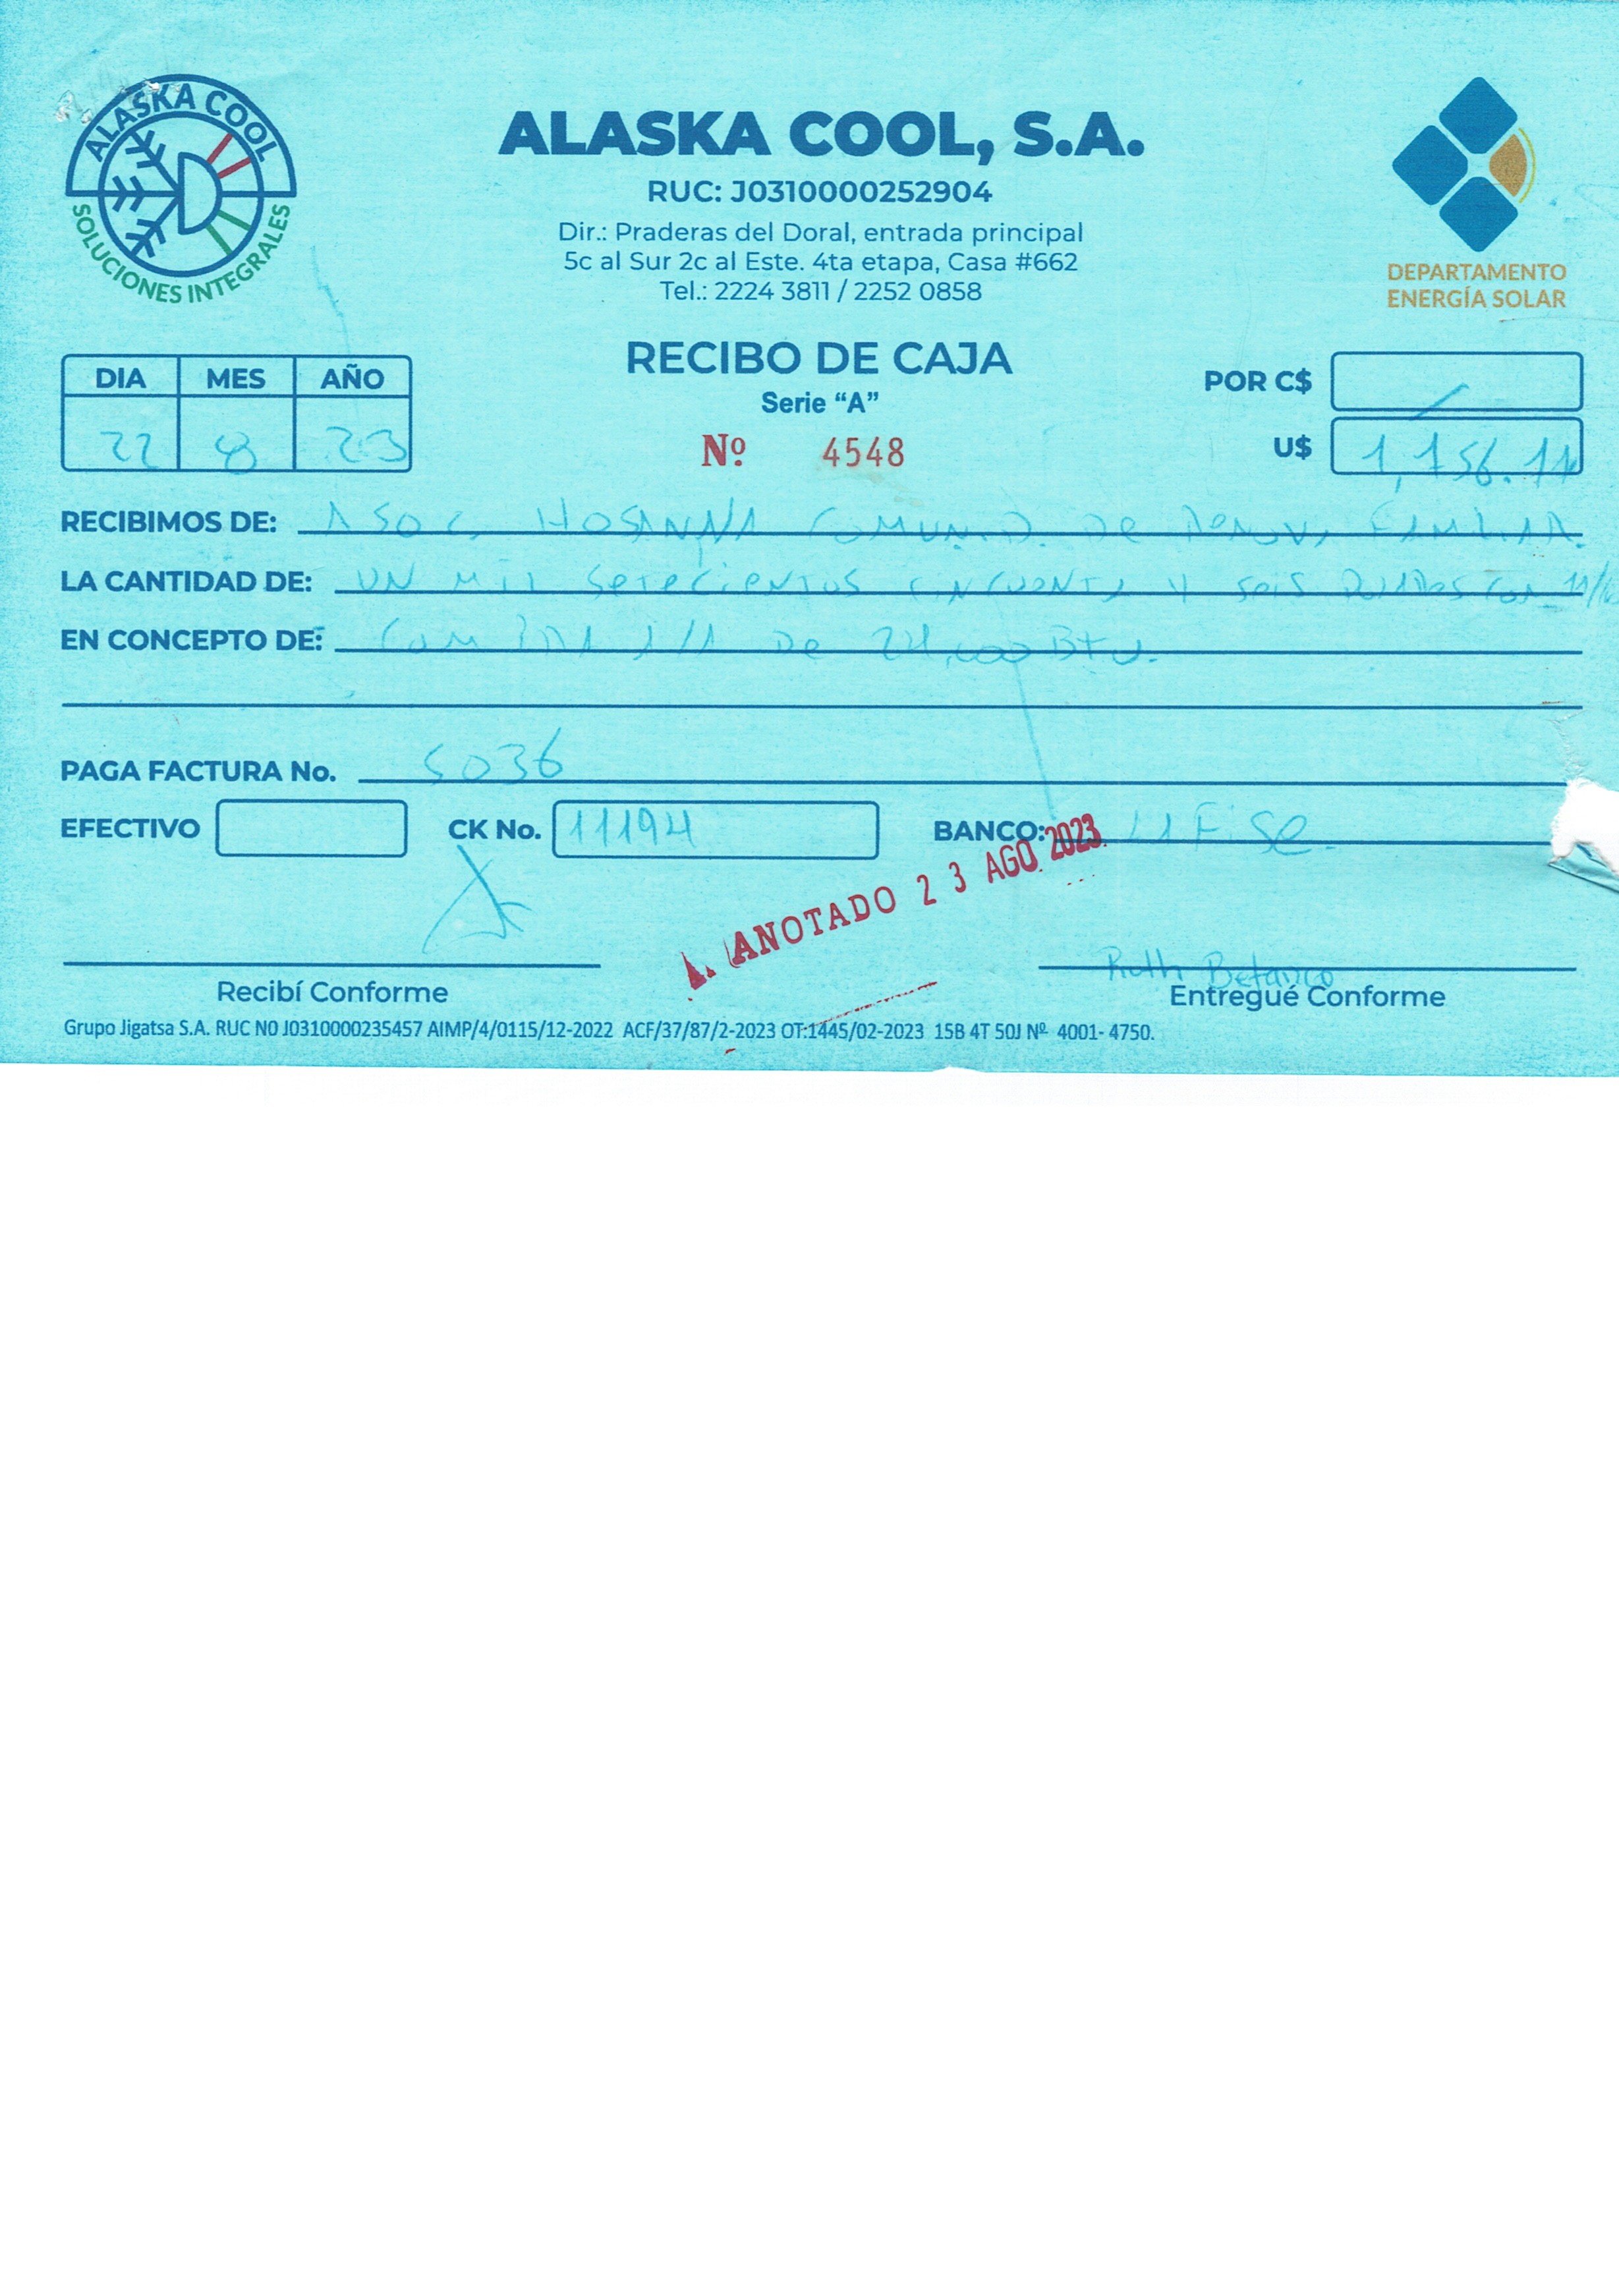 ALASKA COOL
SOLUCIONES INTEGRALES
ALASKA COOL, S.A.
RUC: J0310000252904
Dir.: Praderas del Doral, entrada principal
5c al Sur 2c al Este. 4ta etapa, Casa #662
Tel.: 2224 3811 / 2252 0858
DEPARTAMENTO
ENERGÍA SOLAR
RECIBO DE CAJA
Serie "A"
Nº 4548
DIA MES AÑO
22 8 23
POR C$
U$ 1,756.11
RECIBIMOS DE: ASOC. HOSANNA COMUNID. DE RENOV. FAMILIAR.
LA CANTIDAD DE: UN MIL SETECIENTOS CINCUENTA Y SEIS DOLARES CON 11/
EN CONCEPTO DE: COMPRA A/A DE 24,000 BTU.
PAGA FACTURA No. 5036
EFECTIVO CK No. 11194 BANCO: LAFISE.
ANOTADO 23 AGO. 2023
Ruth Betanco
Recibí Conforme Entregué Conforme
Grupo Jigatsa S.A. RUC N0 J0310000235457 AIMP/4/0115/12-2022 ACF/37/87/2-2023 OT:1445/02-2023 15B 4T 50J Nº 4001- 4750.